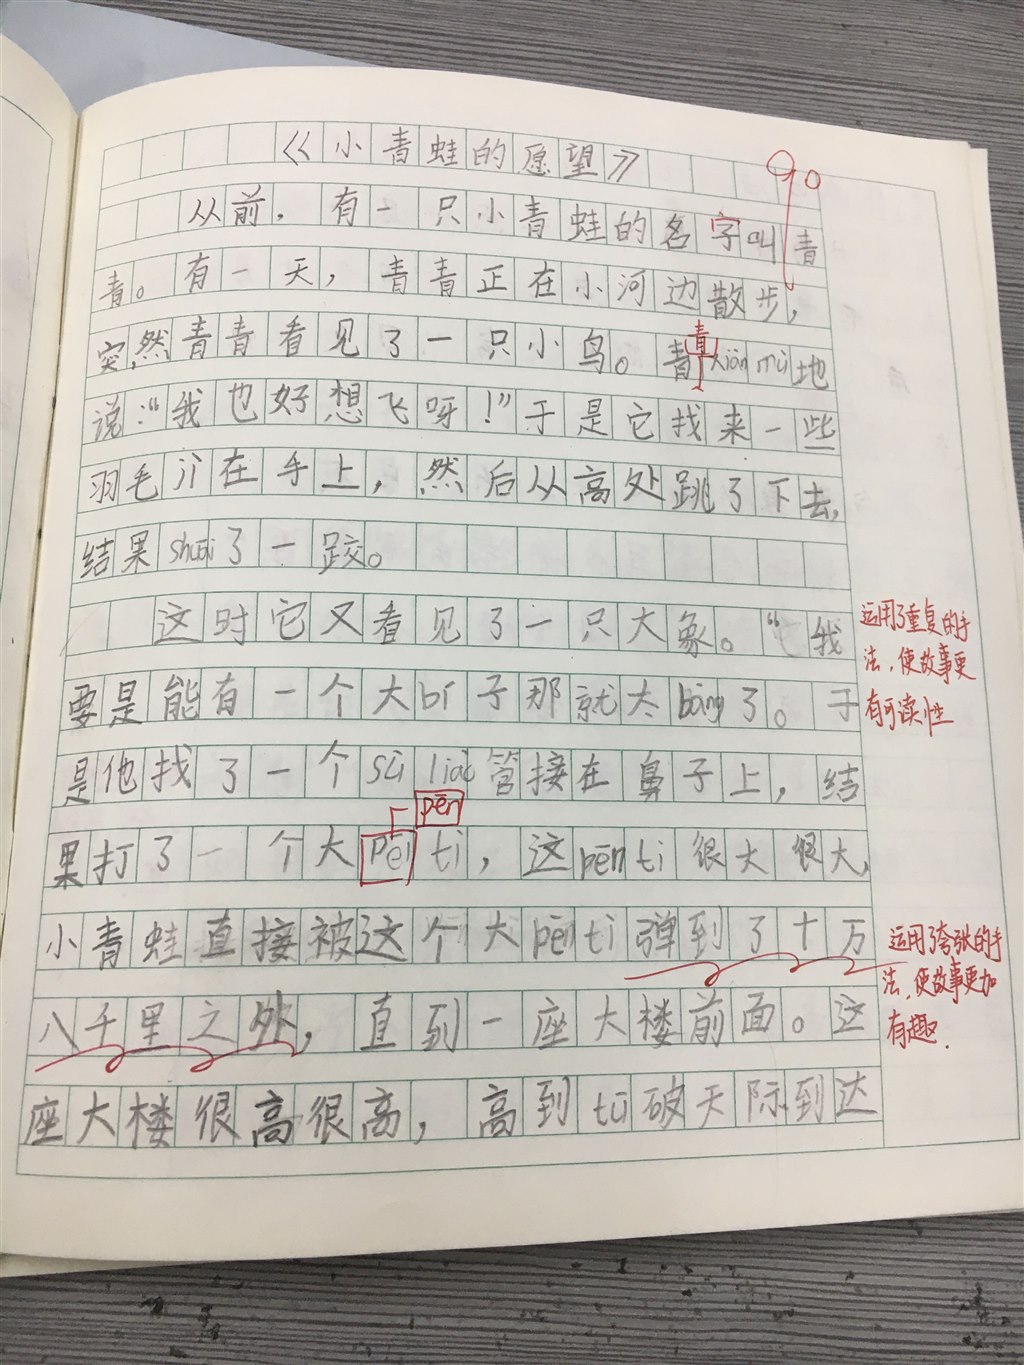 《小青蛙的愿望》
90
从前，有一只小青蛙的名字叫青
青。有一天，青青正在小河边散步，
突然青青看见了一只小鸟。青青xiàn mù地
说：“我也好想飞呀！”于是它找来一些
羽毛在手上，然后从高处跳了下去，
结果shuāi了一跤。
这时它又看见了一只大象。“我
要是能有一个大bí子那就太bàng了。于
是他找了一个sù liào管接在鼻子上，结
pēn
果打了一个大pēi tì，这pēn tì很大很大，
小青蛙直接被这个大pēn tì弹到了十万
八千里之处，直到一座大楼前面。这
座大楼很高很高，高到tū破天际到达
运用了重复的手
法，使故事更
有可读性
运用了夸张的手
法，使故事更加
有趣.